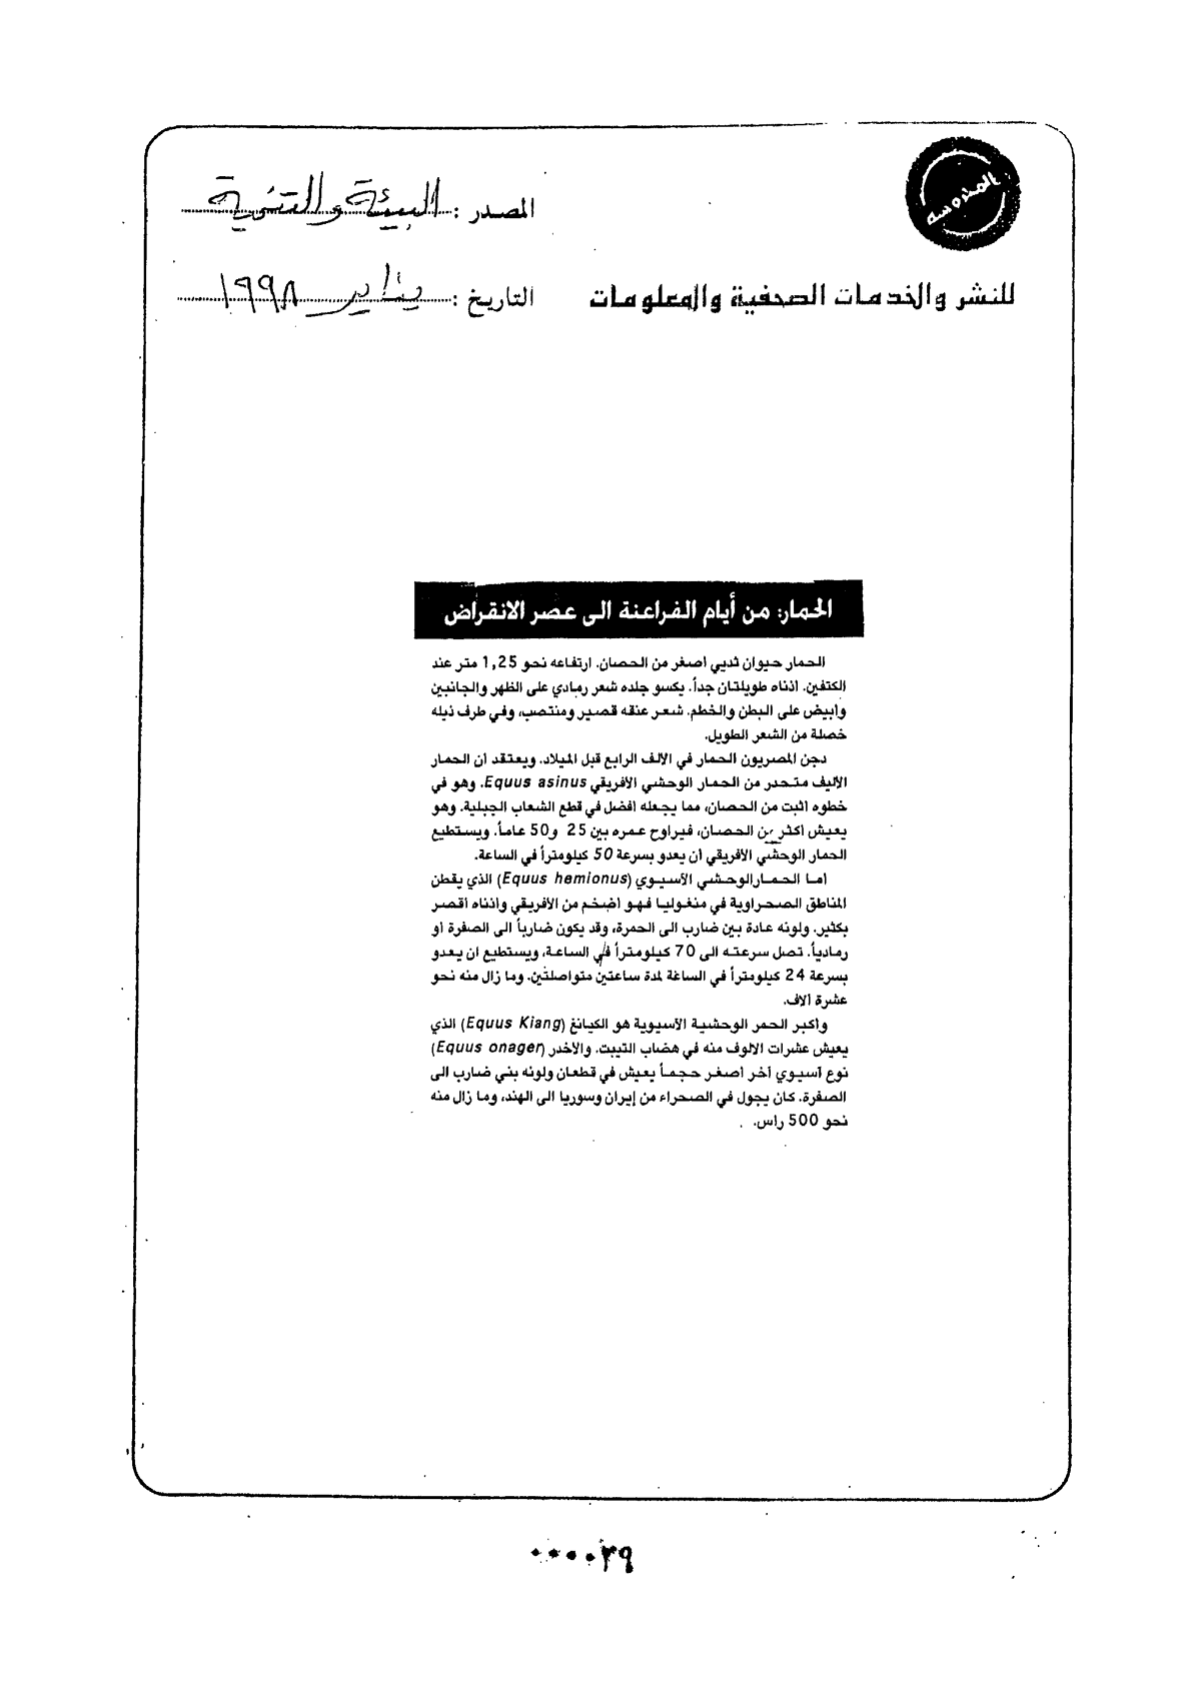 المحروسة
المصدر : البيئة والتنمية
للنشر والخدمات الصحفية والمعلومات
التاريخ : يناير ١٩٩٨
الحمار: من أيام الفراعنة الى عصر الانقراض
الحمار حيوان ثديي أصغر من الحصان. ارتفاعه نحو 1,25 متر عند
الكتفين. اذناه طويلتان جداً. يكسو جلده شعر رمادي على الظهر والجانبين
وأبيض على البطن والخطم. شعر عنقه قصير ومنتصب، وفي طرف ذيله
خصلة من الشعر الطويل.
دجن المصريون الحمار في الألف الرابع قبل الميلاد. ويعتقد أن الحمار
الأليف متحدر من الحمار الوحشي الأفريقي Equus asinus. وهو في
خطوه أثبت من الحصان، مما يجعله أفضل في قطع الشعاب الجبلية. وهو
يعيش أكثر من الحصان، فيراوح عمره بين 25 و50 عاماً. ويستطيع
الحمار الوحشي الأفريقي أن يعدو بسرعة 50 كيلومتراً في الساعة.
أما الحمار الوحشي الآسيوي (Equus hemionus) الذي يقطن
المناطق الصحراوية في منغوليا فهو أضخم من الأفريقي وأذناه أقصر
بكثير. ولونه عادة بين ضارب الى الحمرة، وقد يكون ضارباً الى الصفرة أو
رمادياً. تصل سرعته الى 70 كيلومتراً في الساعة، ويستطيع ان يعدو
بسرعة 24 كيلومتراً في الساعة لمدة ساعتين متواصلتين. وما زال منه نحو
عشرة آلاف.
وأكبر الحمر الوحشية الآسيوية هو الكيانغ (Equus Kiang) الذي
يعيش عشرات الألوف منه في هضاب التيبت. والأخدر (Equus onager)
نوع آسيوي آخر أصغر حجماً يعيش في قطعان ولونه بني ضارب الى
الصفرة. كان يجول في الصحراء من إيران وسوريا الى الهند، وما زال منه
نحو 500 رأس.
٠٠٠٠٣٩